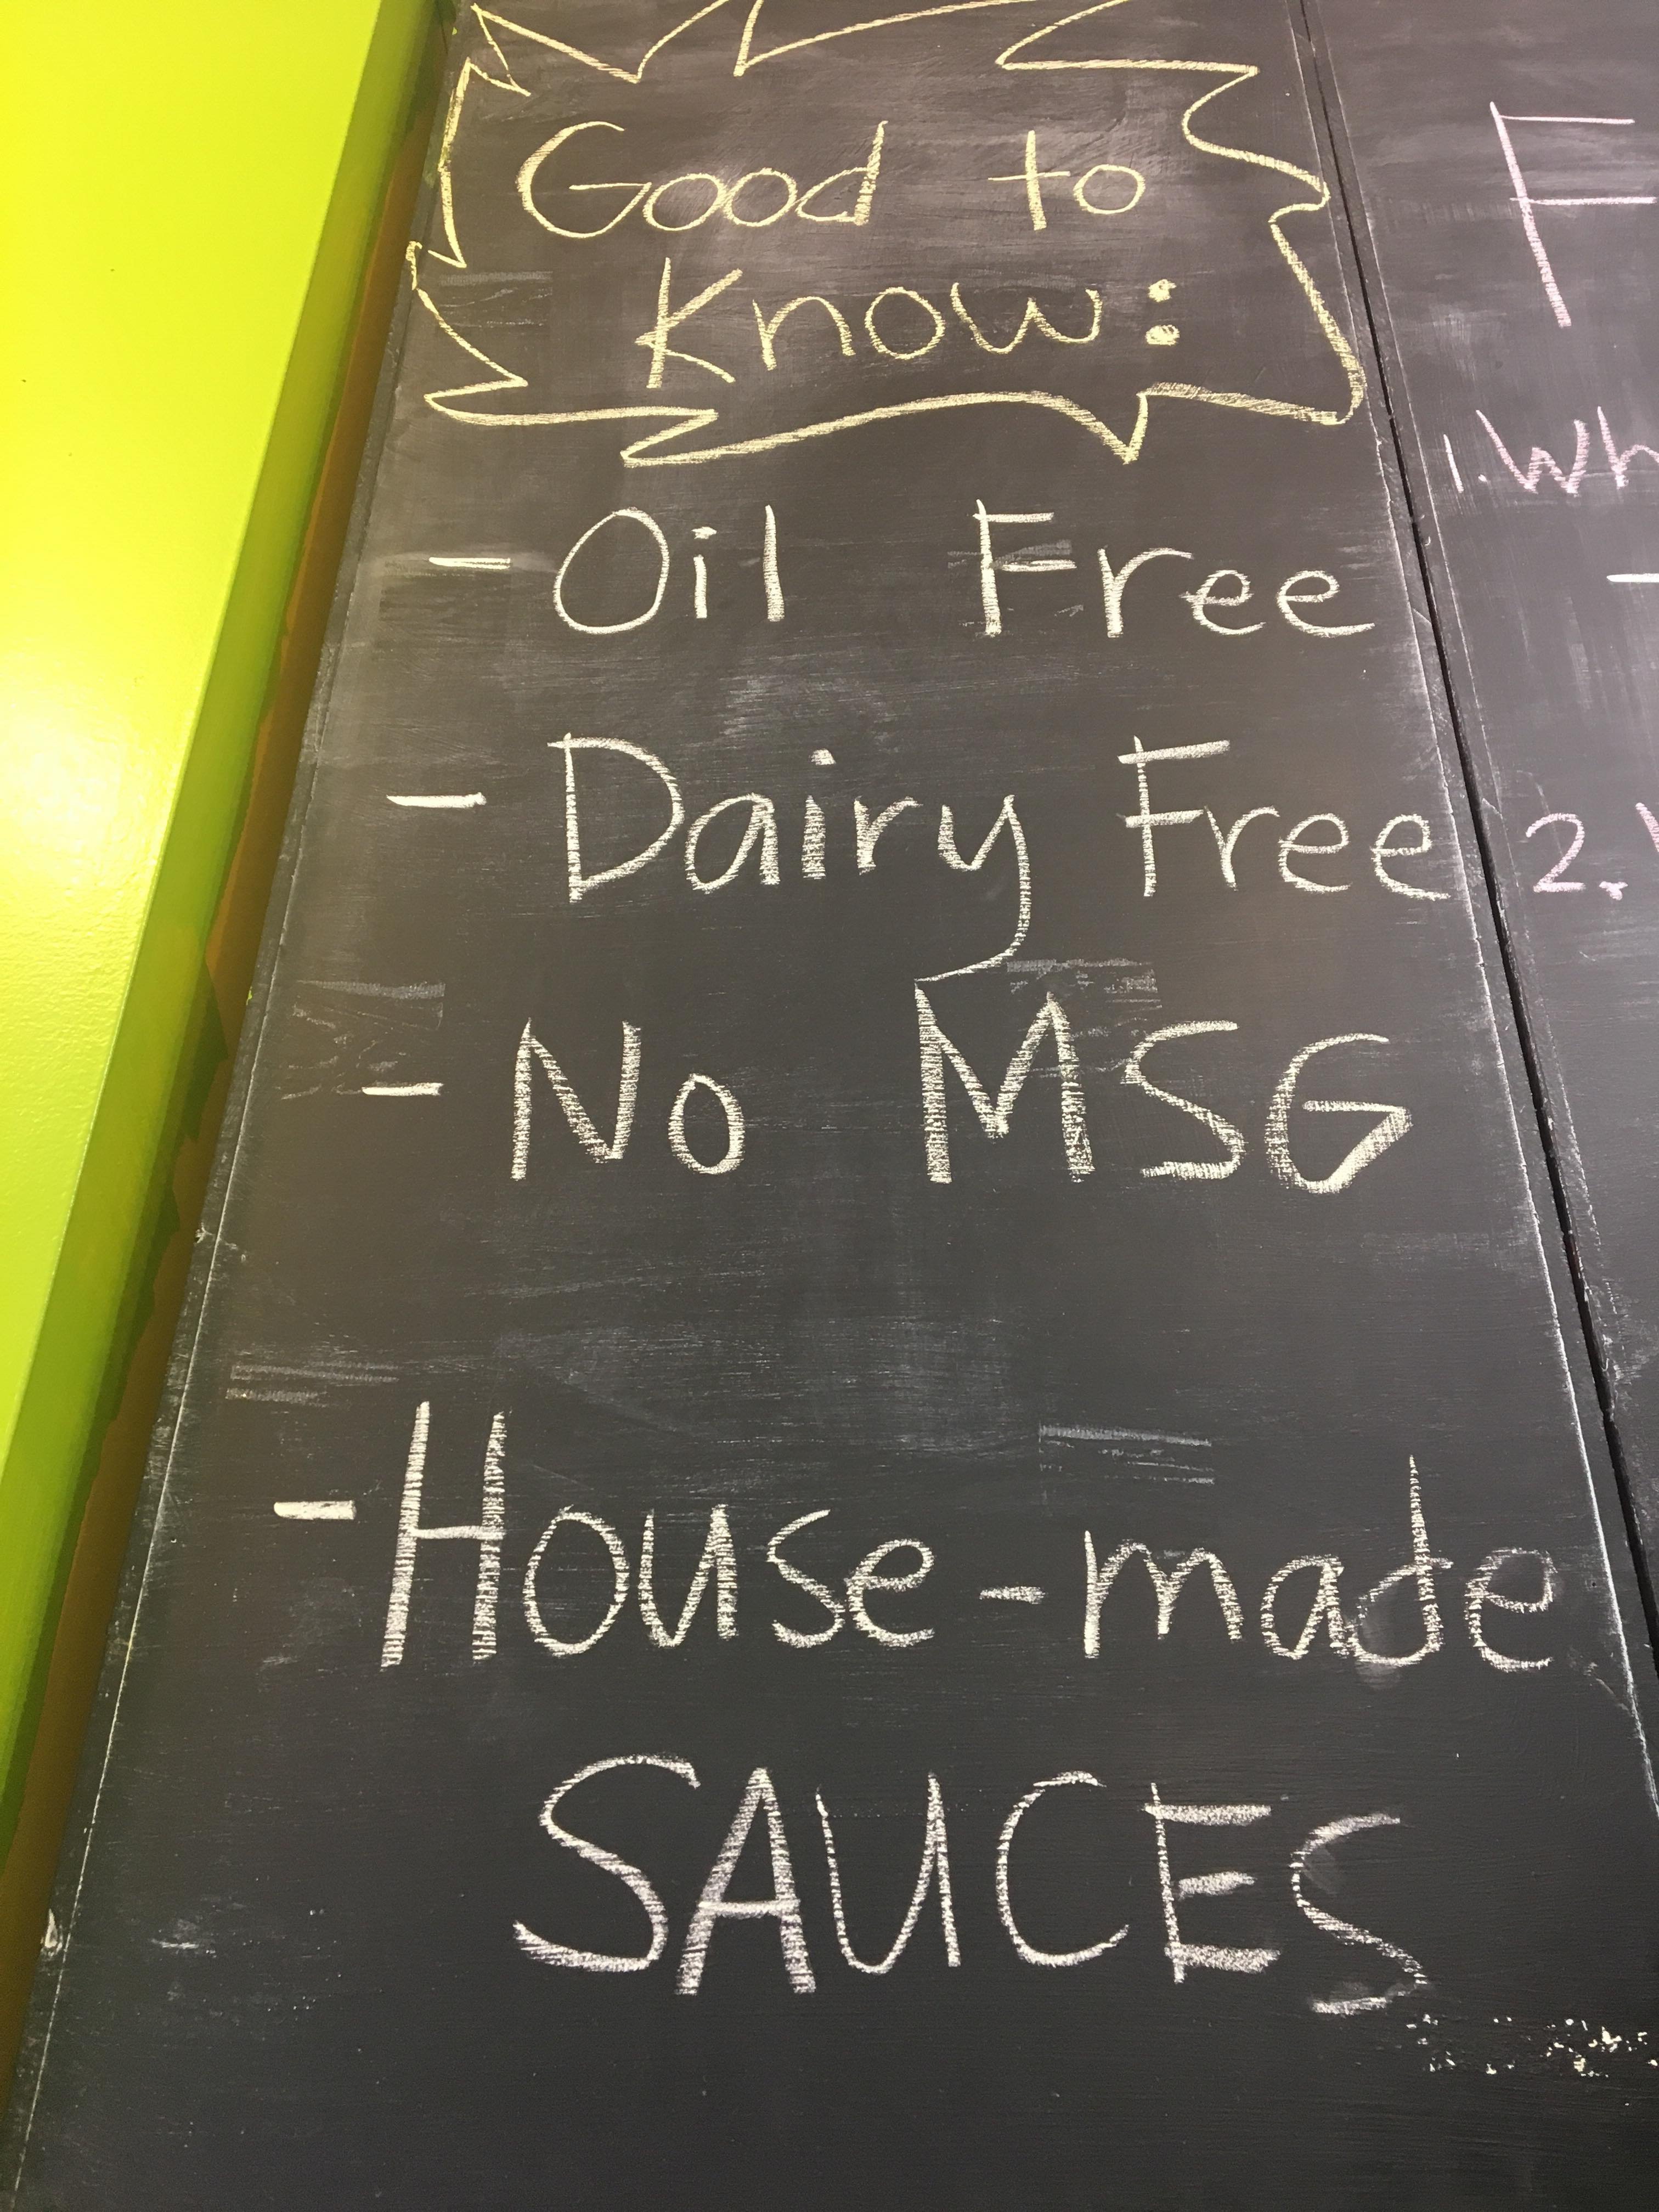 Good to
Know:
- Oil Free
- Dairy Free
- No MSG
- House-made
SAUCES
F
1. Wh
-
2.